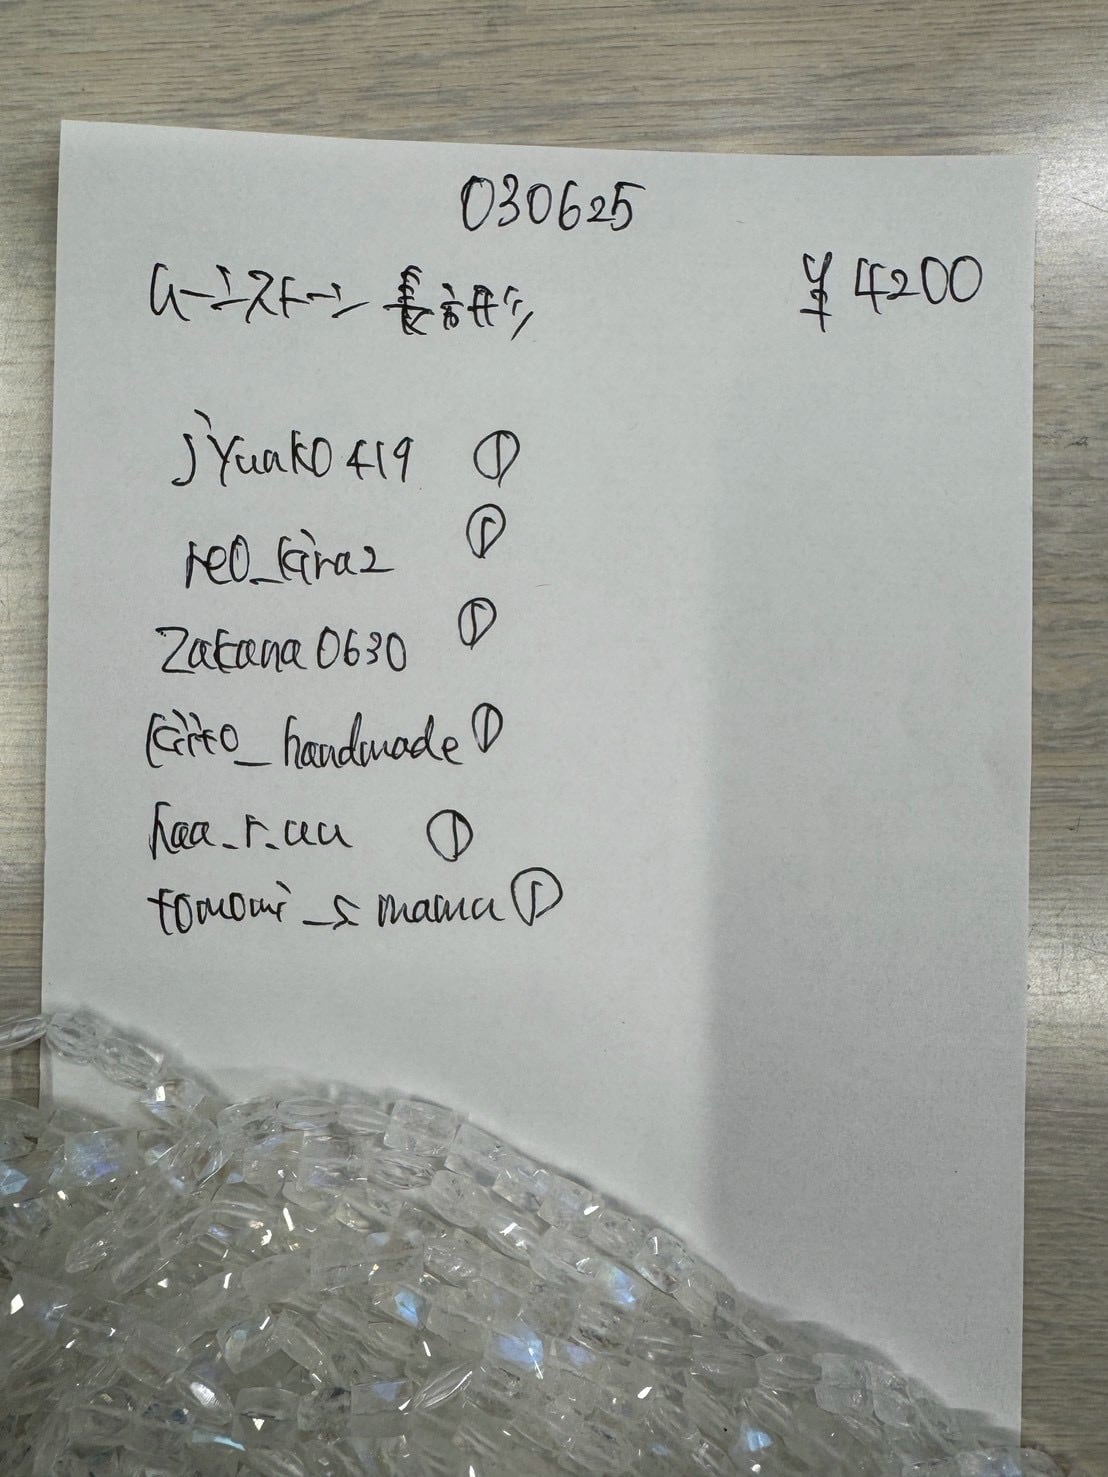 030625
ムーンストーン 長方形 ¥4200
jyuako419 ①
reo_kira2 ①
Zakana0630 ①
kiito_handmade ①
haa_r_uu ①
tomomi_s mama ①